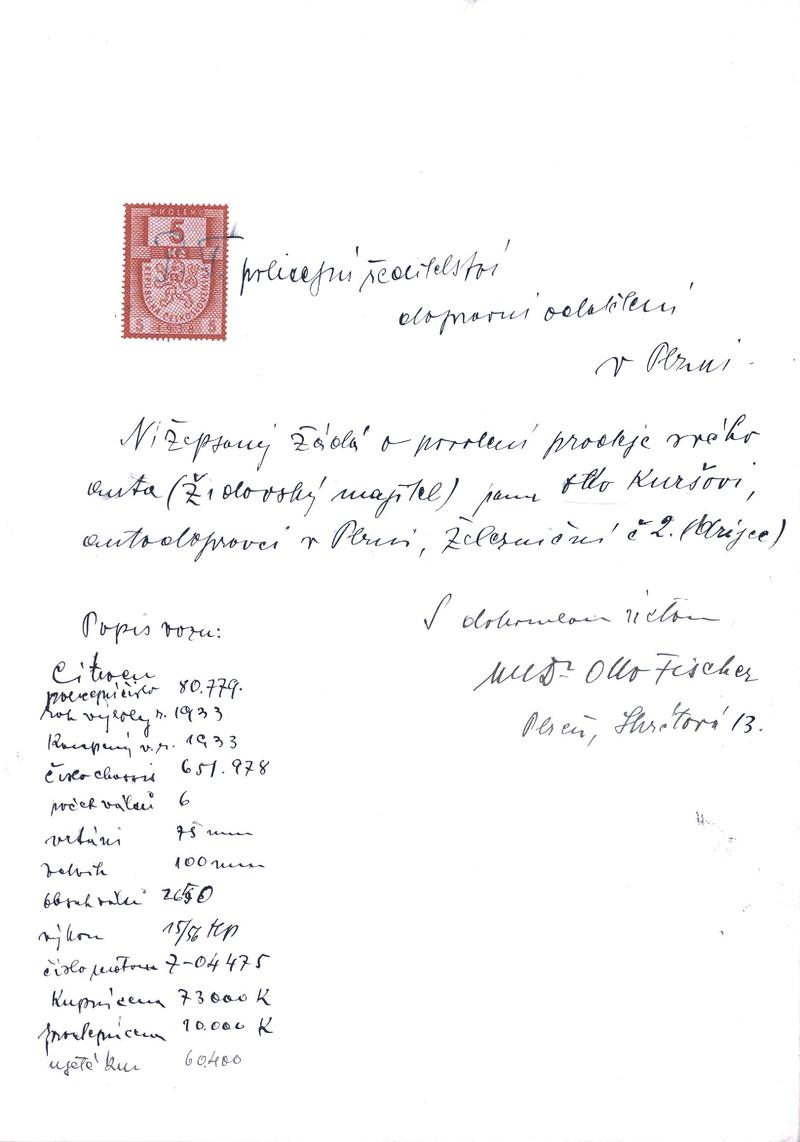 KOLEK
5
Kč
REPUBLIKA ČESKOSLOVENSKÁ
5 1938 5
policejní ředitelství
dopravní oddělení
v Plzni.
Nížepsaný žádá o povolení prodeje svého
auta (Židovský majitel) panu Otto Kuršovi,
autodopravci v Plzni, Železniční č 2. (dříjce)
S dokonalou úctou
MUDr Otto Fischer
Plzeň, Skrétova 13.
Popis vozu:
Citroen
policejní číslo 80.779.
rok výroby r. 1933
Koupený v r. 1933
číslo chassis 651.978
počet válců 6
vrtání 75 mm
zdvih 100 mm
obsah válců 2650
výkon 15/56 HP
číslo motoru 7-04475
Kupní cena 73000 K
prodejní cena 10.000 K
ujeté km 60.400